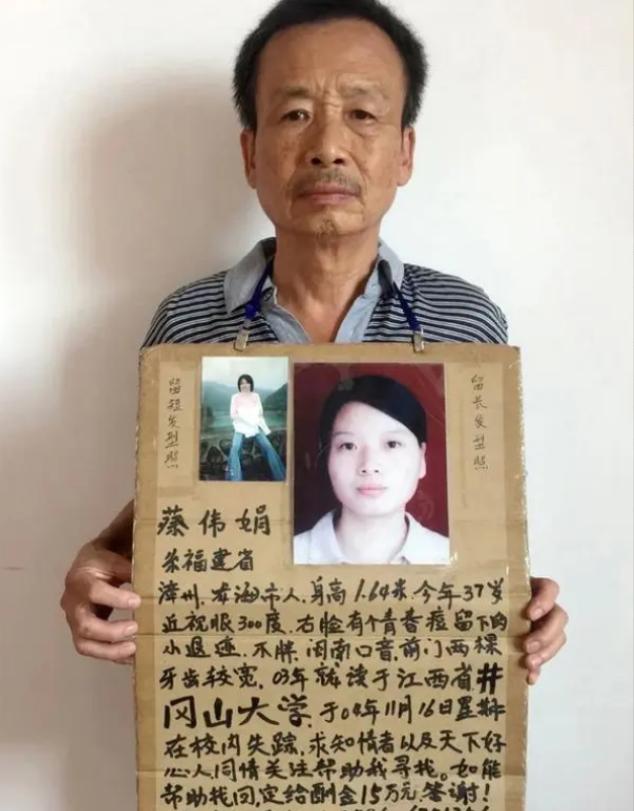 留短发型照
留长发型照
蔡伟娟
系福建省
漳州,龙海市人,身高1.64米,今年37岁
近视眼300度,右脸有个青春痘留下的
小退迹,不胖,闽南口音,前门两棵
牙齿较宽,03年就读于江西省井
冈山大学,于04年11月16日
在校内失踪,求知情者以及天下好
心人同情关注帮助我寻找。如能
帮助找回,定给酬金15万元答谢!